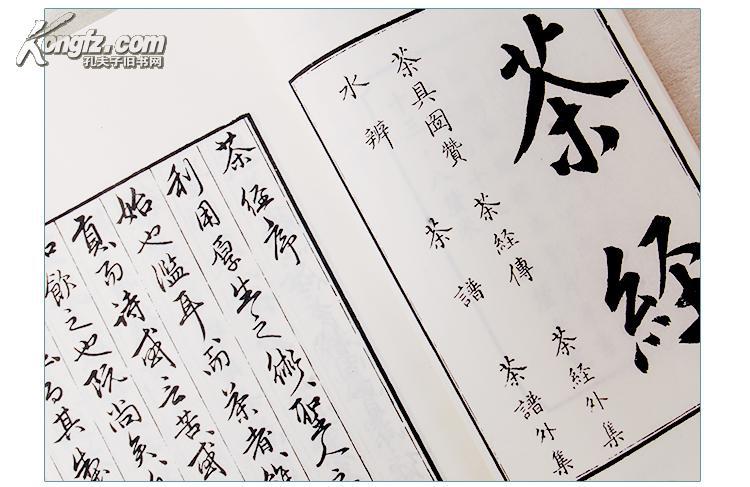 Kongfz.com
孔夫子旧书网
茶経
茶具圖贊 茶経傳 茶経外集
水辨 茶譜 茶譜外集
茶経序
利用厚生之術聖人
始也濫耳而茶者
貢而詩或云苦或
飲之也阮尚矣